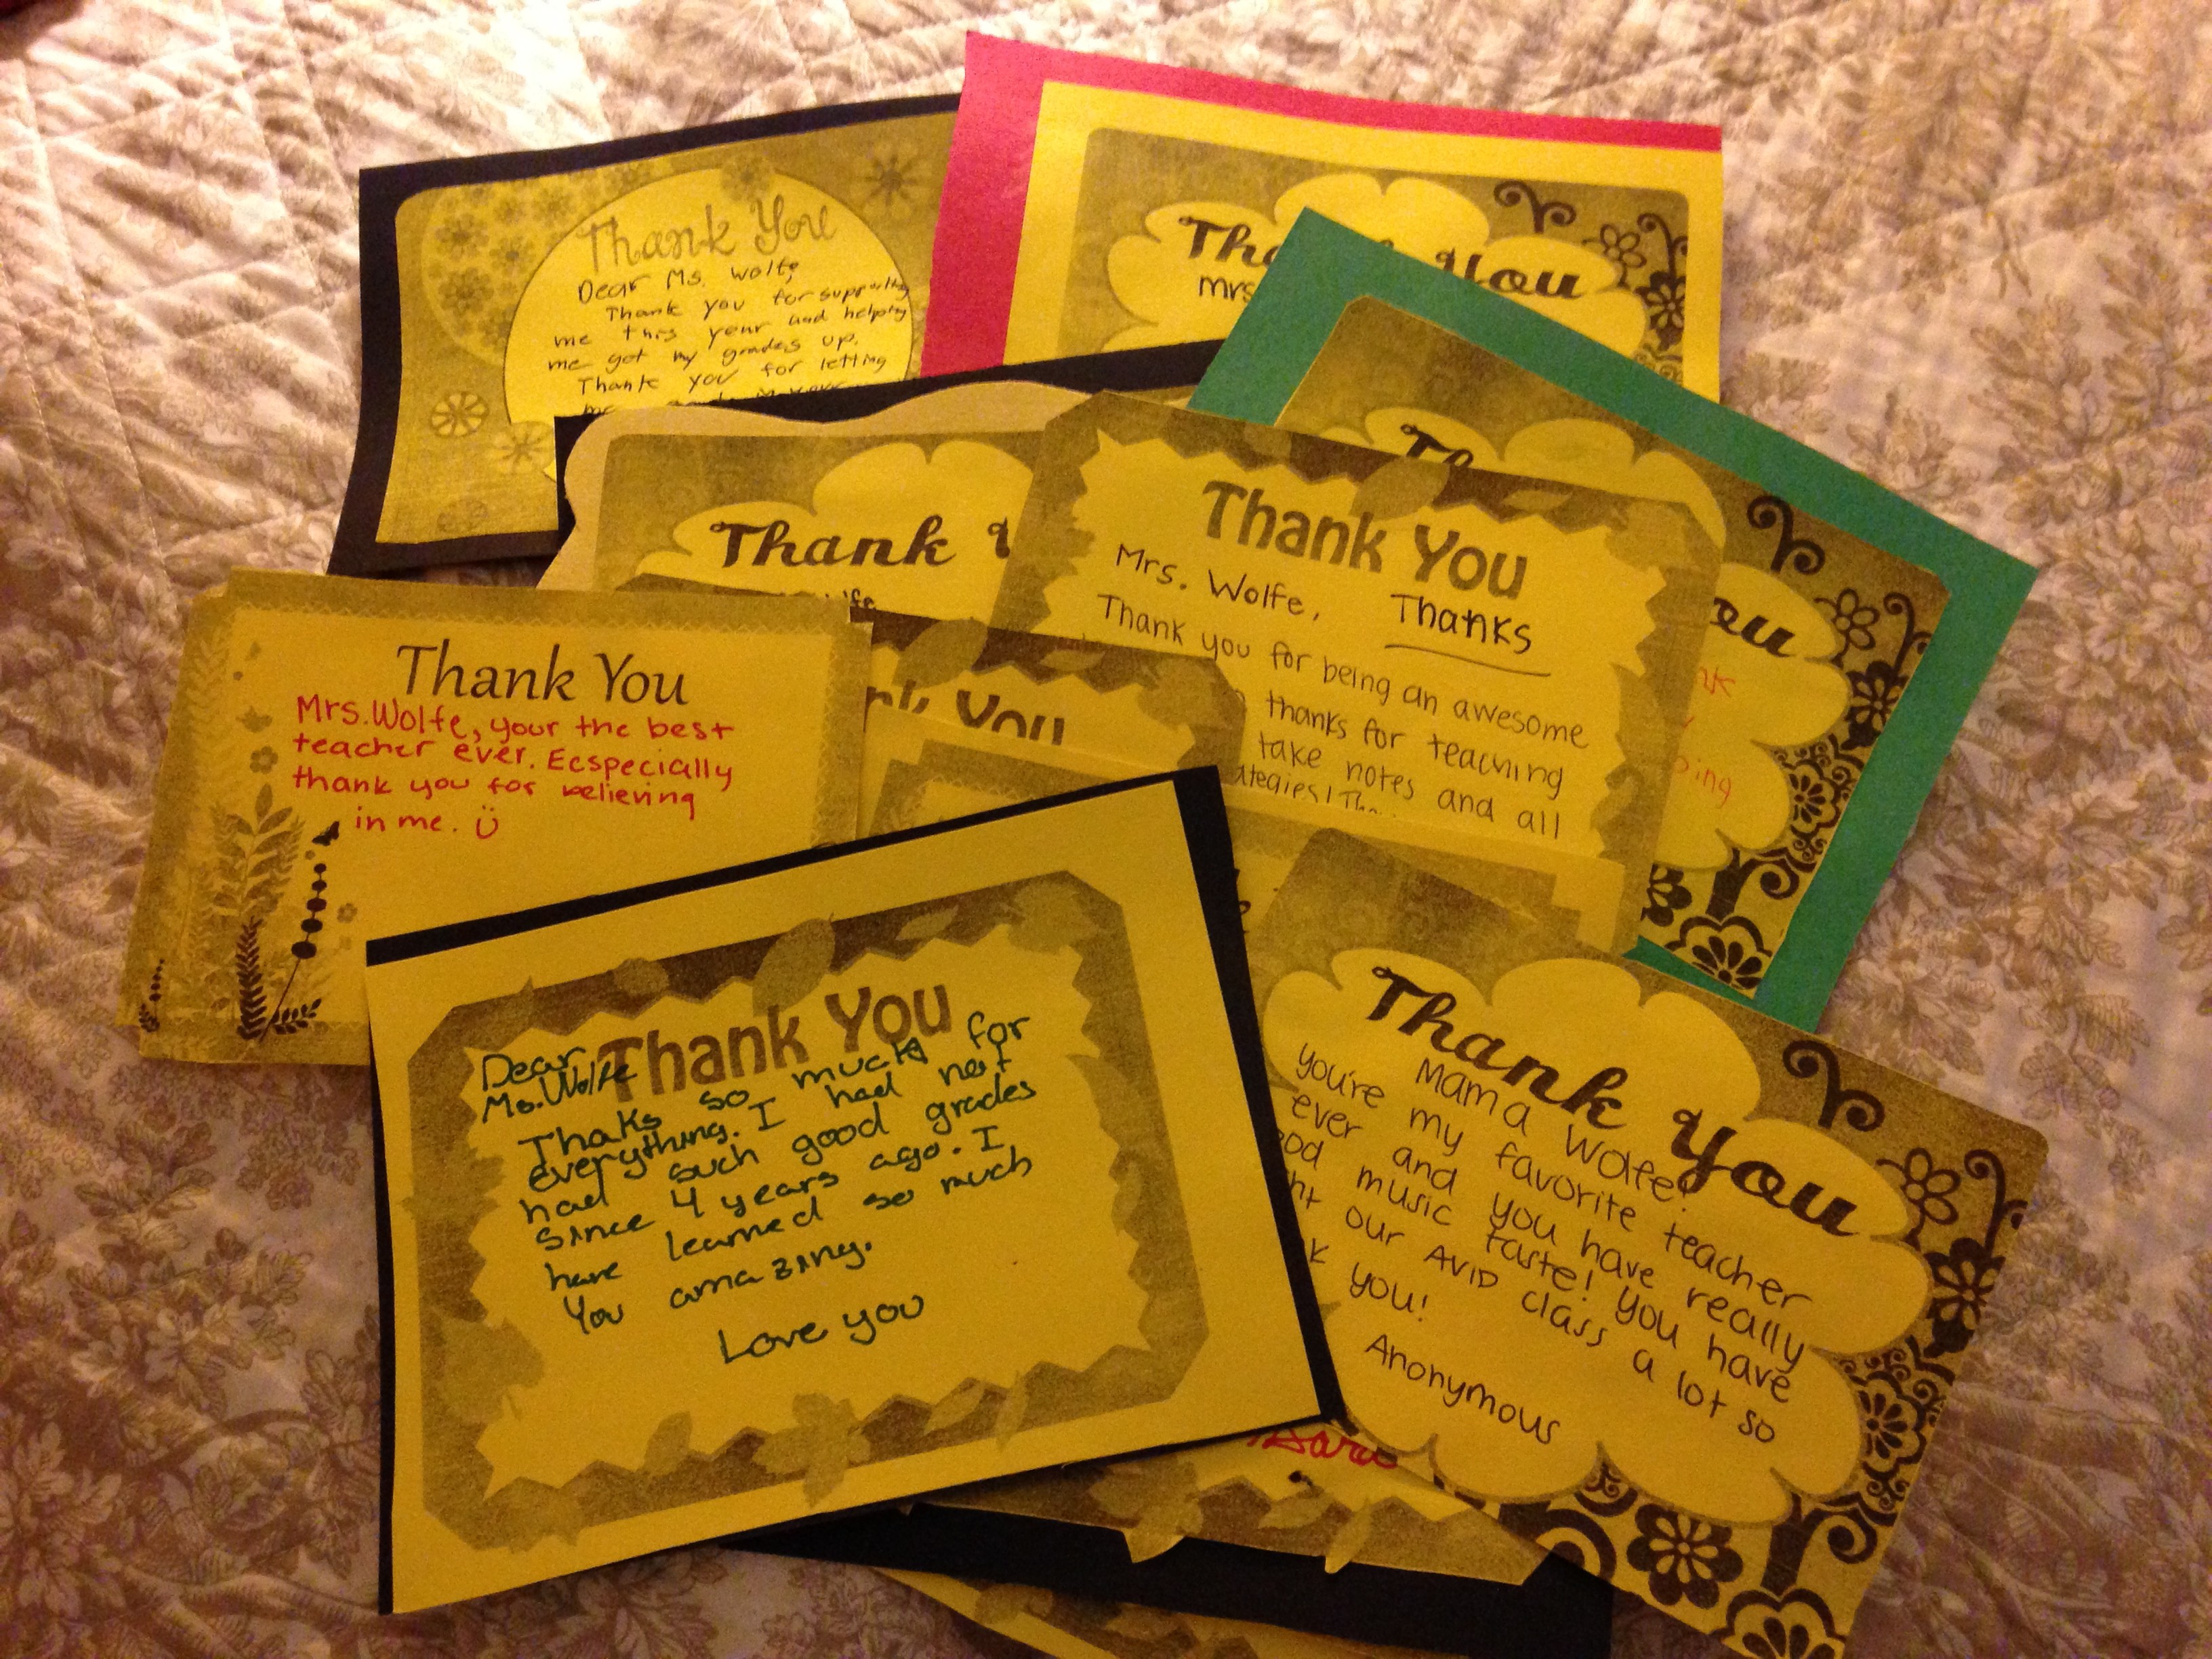 Thank You
Dear Ms. Wolfe
Thank you for supporting
me this year and helping
me get my grades up.
Thank you for letting
me
You
mrs
Thank
Thank You
Mrs. Wolfe, Thanks
Thank you for being an awesome
thanks for teaching
take notes and all
ategies!
ou
nk
ping
Thank You
Mrs. Wolfe, your the best
teacher ever. Ecspecially
thank you for believing
in me. Ü
nk You
Thank You
Dear
Ms. Wolfe
Thaks so much for
everything. I had not
had such good grades
since 4 years ago. I
have learned so much
You amazing.
Love you
Thank You
Mama Wolfe!
you're my favorite teacher
ever and you have really
ood music taste! You have
ht our AVID class a lot so
k you!
Anonymous